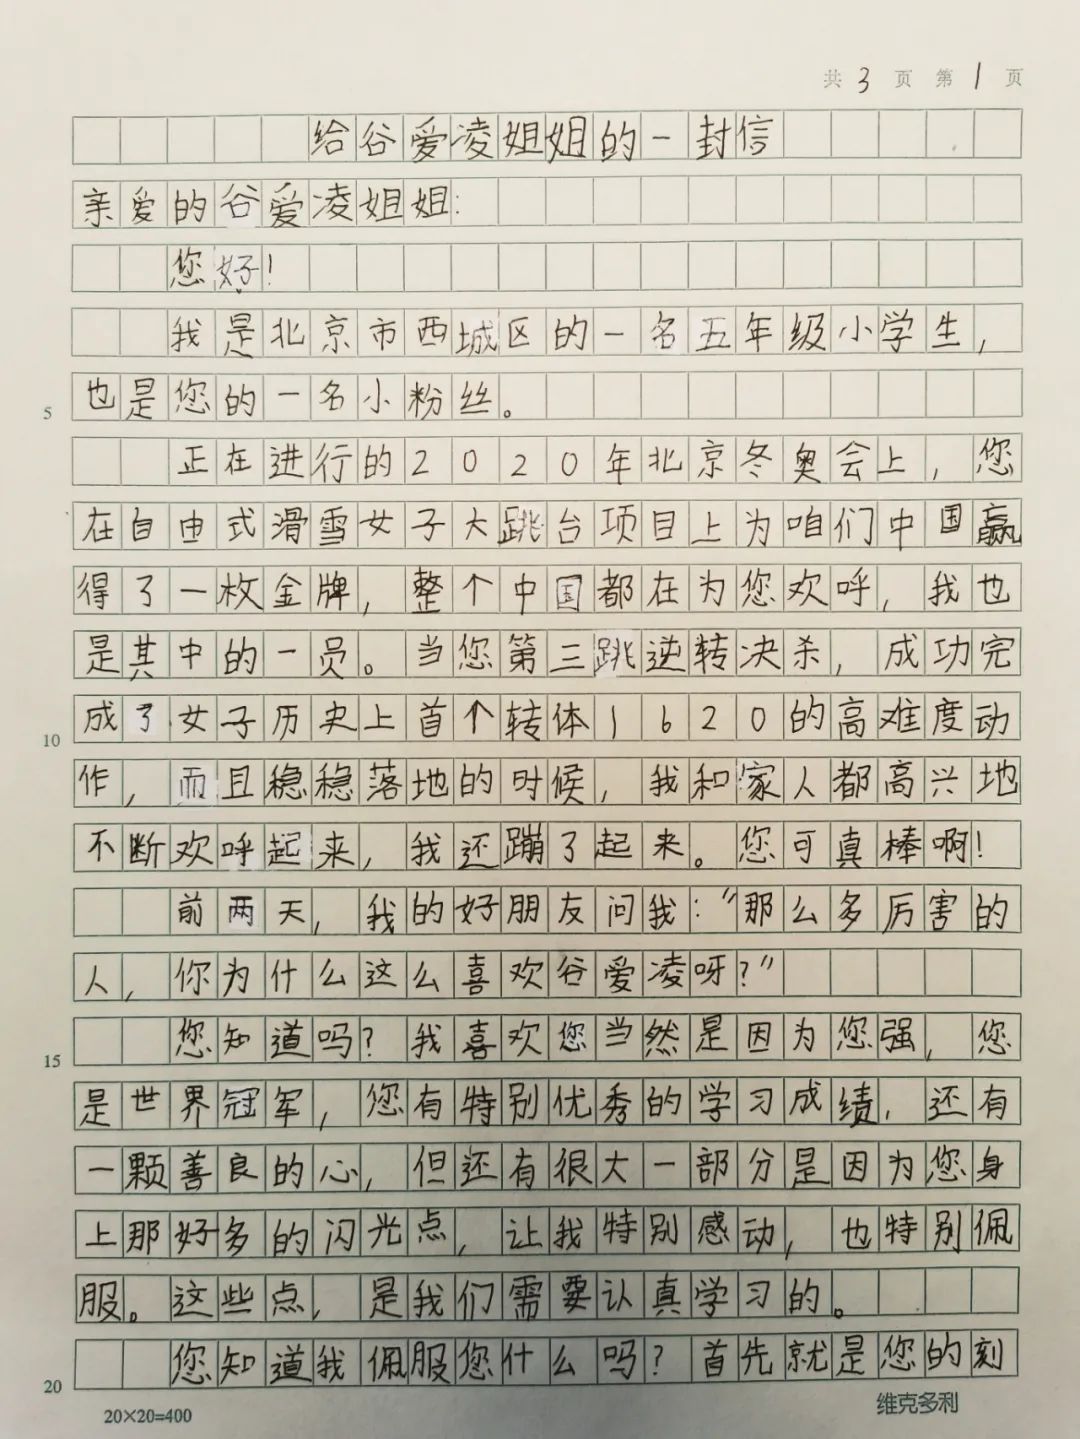 共 3 页 第 1 页
给谷爱凌姐姐的一封信
亲爱的谷爱凌姐姐:
您好!
我是北京市西城区的一名五年级小学生,
5 也是您的一名小粉丝。
正在进行的2020年北京冬奥会上,您
在自由式滑雪女子大跳台项目上为咱们中国赢
得了一枚金牌,整个中国都在为您欢呼,我也
是其中的一员。当您第三跳逆转决杀,成功完
10 成了女子历史上首个转体1620的高难度动
作,而且稳稳落地的时候,我和家人都高兴地
不断欢呼起来,我还蹦了起来。您可真棒啊!
前两天,我的好朋友问我:“那么多厉害的
人,你为什么这么喜欢谷爱凌呀?”
15 您知道吗?我喜欢您当然是因为您强,您
是世界冠军,您有特别优秀的学习成绩,还有
一颗善良的心,但还有很大一部分是因为您身
上那好多的闪光点,让我特别感动,也特别佩
服。这些点,是我们需要认真学习的。
20 您知道我佩服您什么吗?首先就是您的刻
20×20=400 维克多利